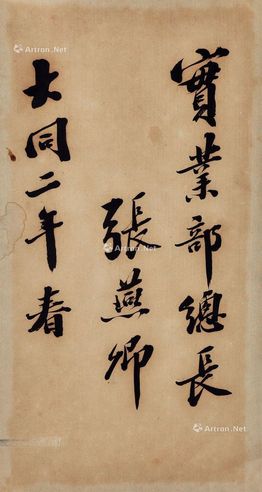 實業部總長
張燕卿
大同二年春
Artron.Net
Artron.Net
Artron.Net